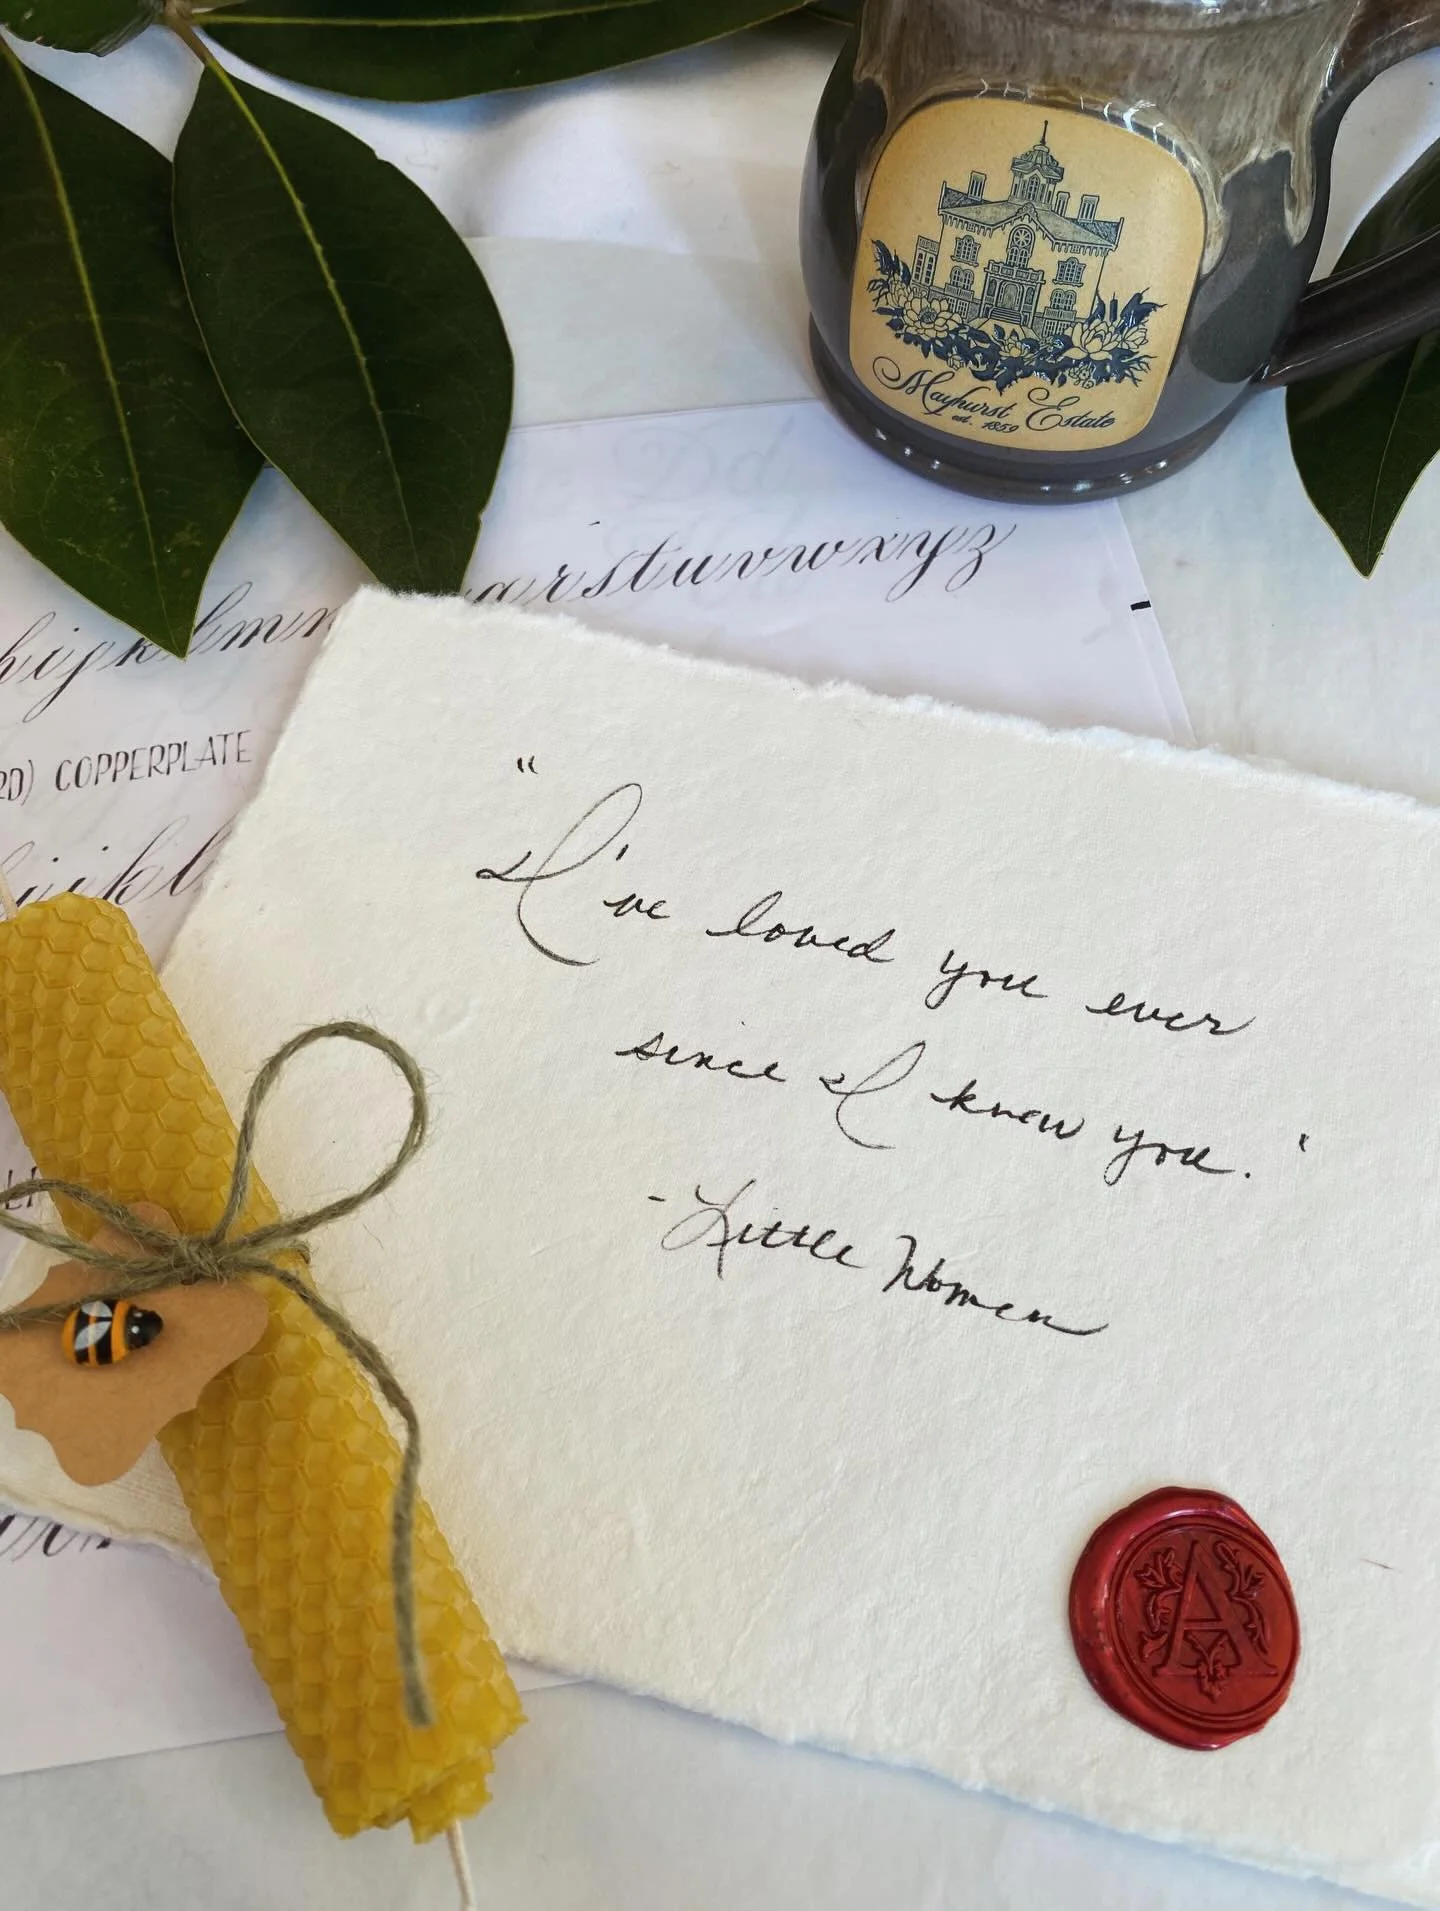 Mayhurst Estate
est. 1859
qrstuvwxyz
hijklmn
RD) COPPERPLATE
hijkl
"I've loved you ever
since I knew you."
-Little Women
A